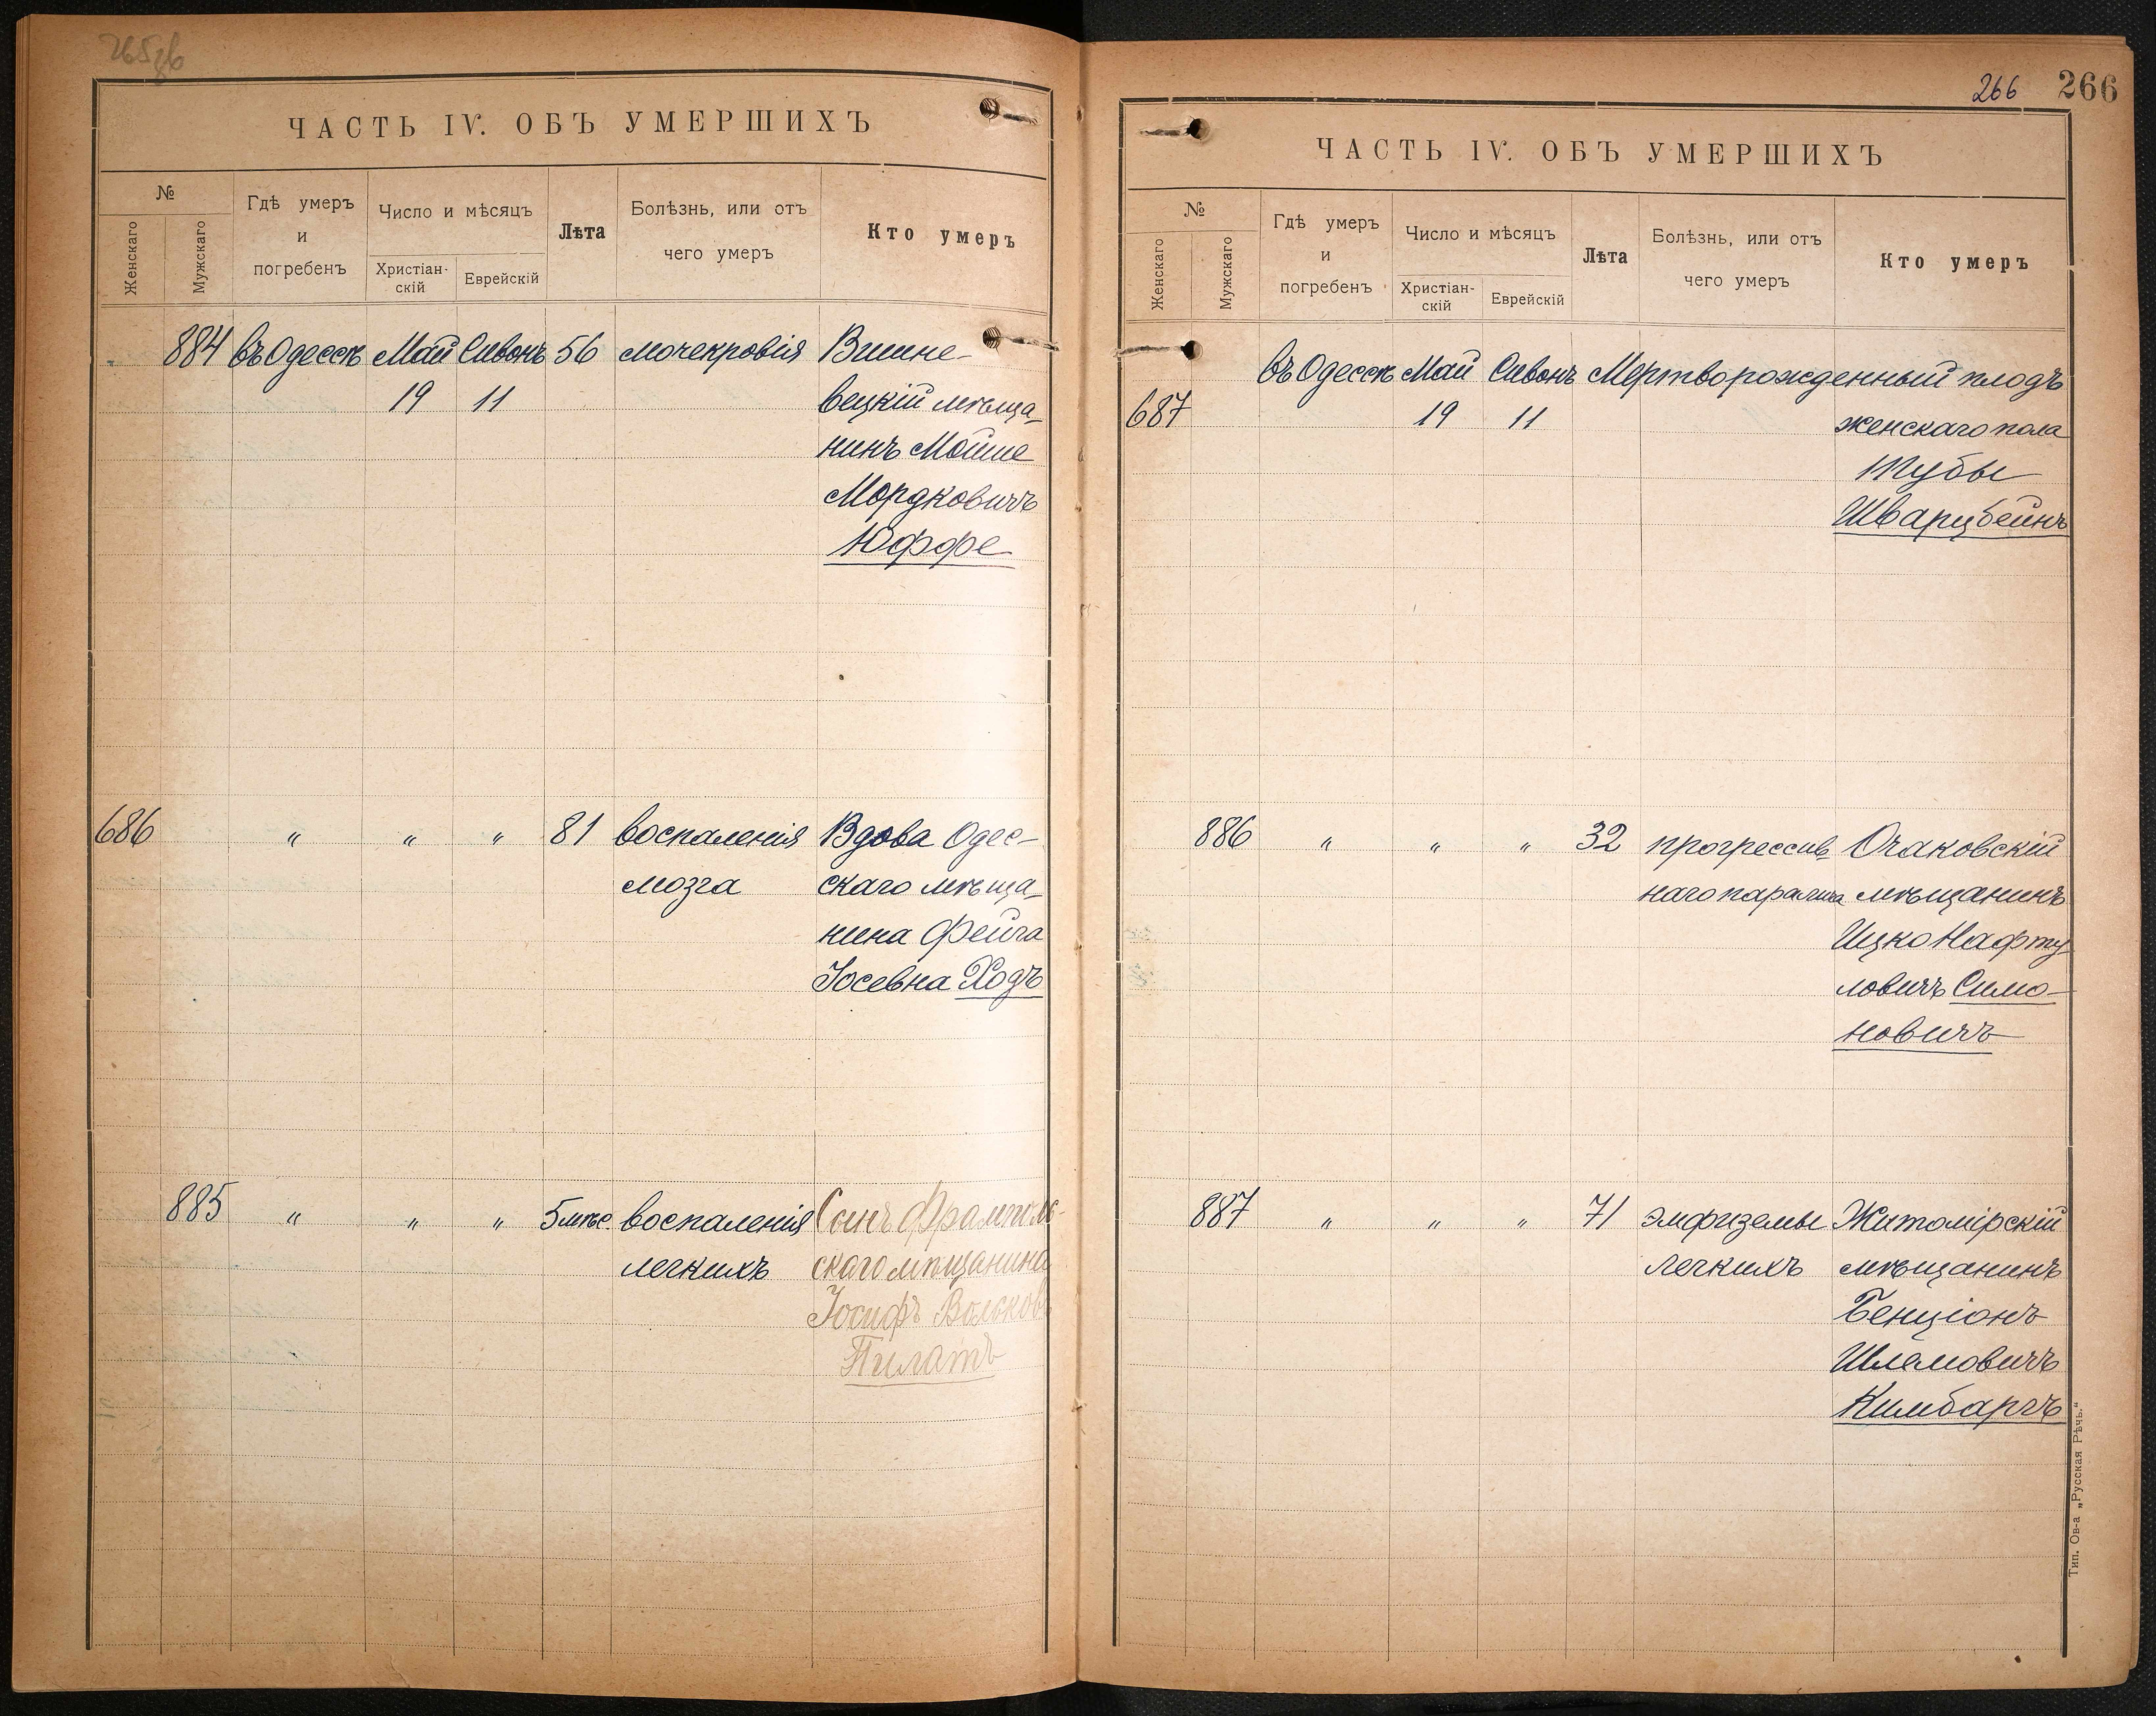 ЧАСТЬ IV. ОБЪ УМЕРШИХЪ
№
Женскаго
Мужскаго
Гдѣ умеръ
и
погребенъ
Число и мѣсяцъ
Христіан-
скій
Еврейскій
Лѣта
Болѣзнь, или отъ
чего умеръ
Кто умеръ
884 въ Одессѣ Май Сивонъ 56 мочекровія Вишне-
19 11 вецкій мѣща-
нинъ Мойше
Мордковичъ
Юффе
686 " " " 81 воспаленія Вдова Одес-
мозга скаго мѣща-
нина Фейга
Іосевна Ходъ
885 " " " 5 мѣс. воспаленія Сынъ
легкихъ скаго мѣщанина
Іосифъ Вольков
Пилатъ
266 266
ЧАСТЬ IV. ОБЪ УМЕРШИХЪ
№
Женскаго
Мужскаго
Гдѣ умеръ
и
погребенъ
Число и мѣсяцъ
Христіан-
скій
Еврейскій
Лѣта
Болѣзнь, или отъ
чего умеръ
Кто умеръ
въ Одессѣ Май Сивонъ Мертворожденный плодъ
687 19 11 женскаго пола
Тубы
Шварцбейнъ
886 " " " 32 прогрессив- Очаковскій
наго паралича мѣщанинъ
Ицко Нафту-
ловичъ Симо-
новичъ
887 " " " 71 эмфиземы Житомірскій
легкихъ мѣщанинъ
Бенціонъ
Шлемовичъ
Кимбаргъ
Тип. Ов-а „Русская Рѣчь."